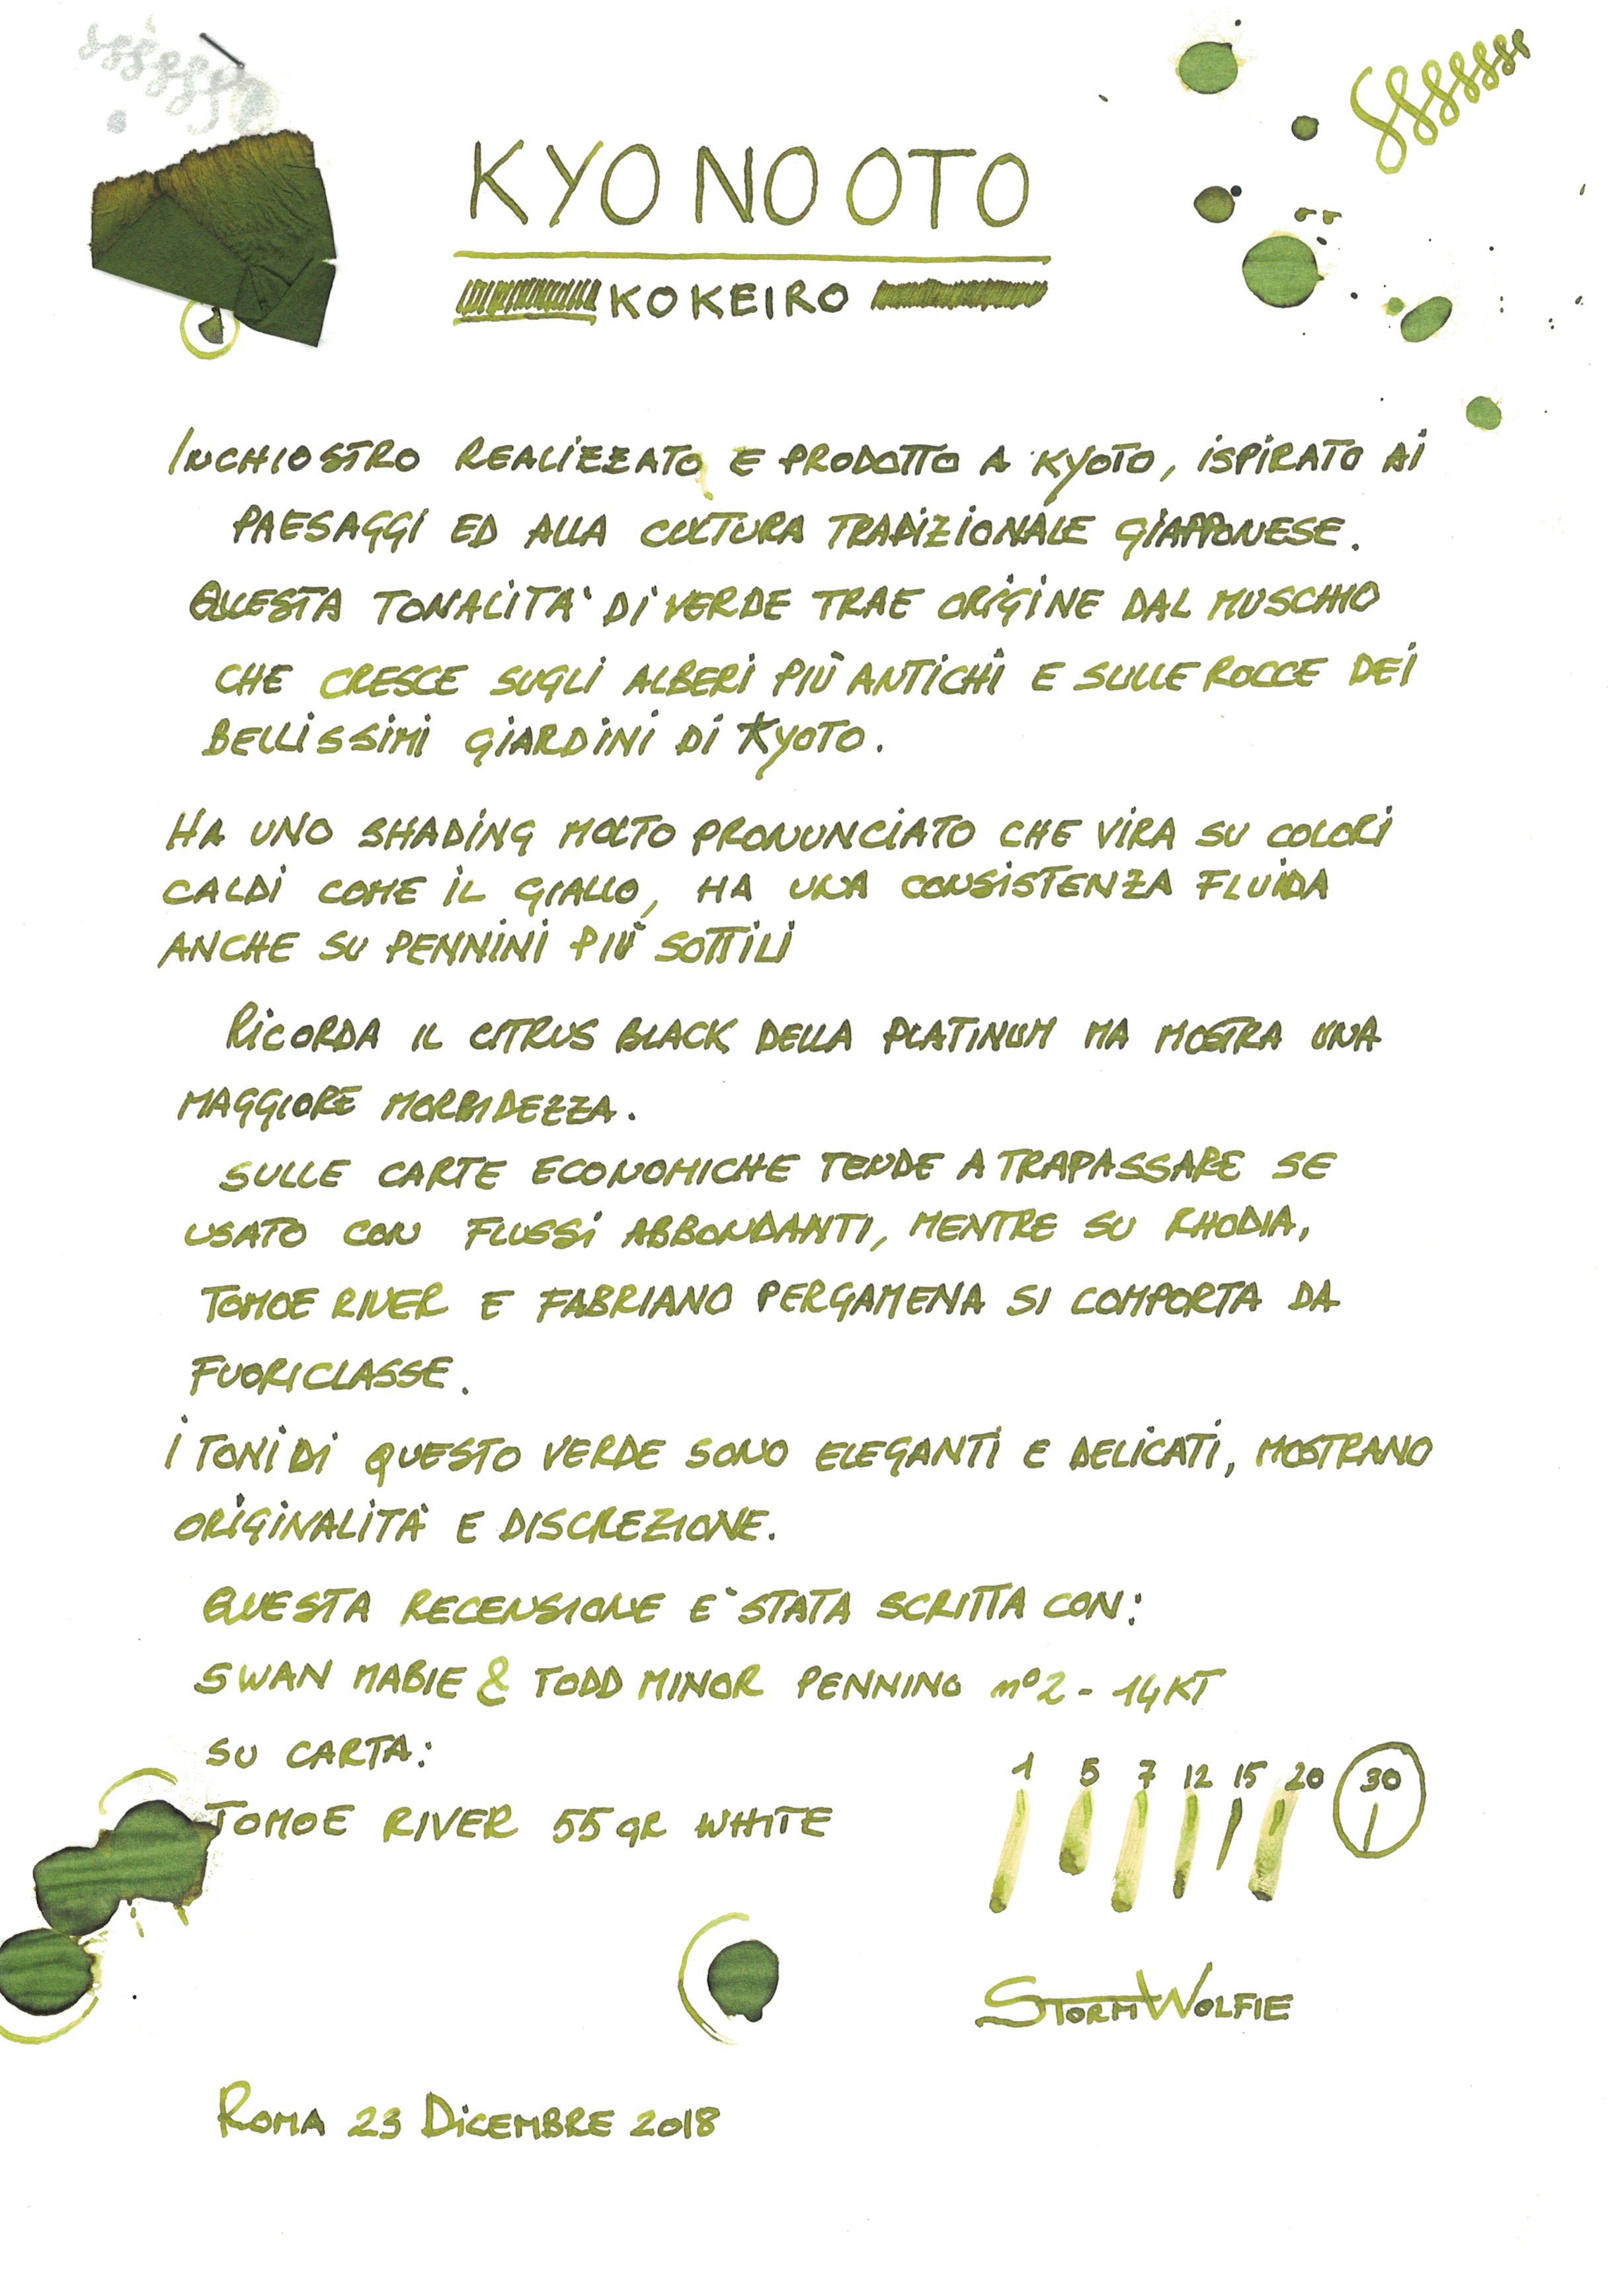 KYO NO OTO
KOKEIRO
INCHIOSTRO REALIZZATO E PRODOTTO A KYOTO, ISPIRATO AI
PAESAGGI ED ALLA CULTURA TRADIZIONALE GIAPPONESE.
QUESTA TONALITA' DI VERDE TRAE ORIGINE DAL MUSCHIO
CHE CRESCE SUGLI ALBERI PIÙ ANTICHI E SULLE ROCCE DEI
BELLISSIMI GIARDINI DI KYOTO.
HA UNO SHADING MOLTO PRONUNCIATO CHE VIRA SU COLORI
CALDI COME IL GIALLO, HA UNA CONSISTENZA FLUIDA
ANCHE SU PENNINI PIÙ SOTTILI
RICORDA IL CITRUS BLACK DELLA PLATINUM MA MOSTRA UNA
MAGGIORE MORBIDEZZA.
SULLE CARTE ECONOMICHE TENDE A TRAPASSARE SE
USATO CON FLUSSI ABBONDANTI, MENTRE SU RHODIA,
TOMOE RIVER E FABRIANO PERGAMENA SI COMPORTA DA
FUORICLASSE.
I TONI DI QUESTO VERDE SONO ELEGANTI E DELICATI, MOSTRANO
ORIGINALITÀ E DISCREZIONE.
QUESTA RECENSIONE E' STATA SCRITTA CON:
SWAN MABIE & TODD MINOR PENNINO nº2 - 14KT
SU CARTA:
1 5 7 12 15 20 30
TOMOE RIVER 55gr WHITE
STORMWOLFIE
ROMA 23 DICEMBRE 2018